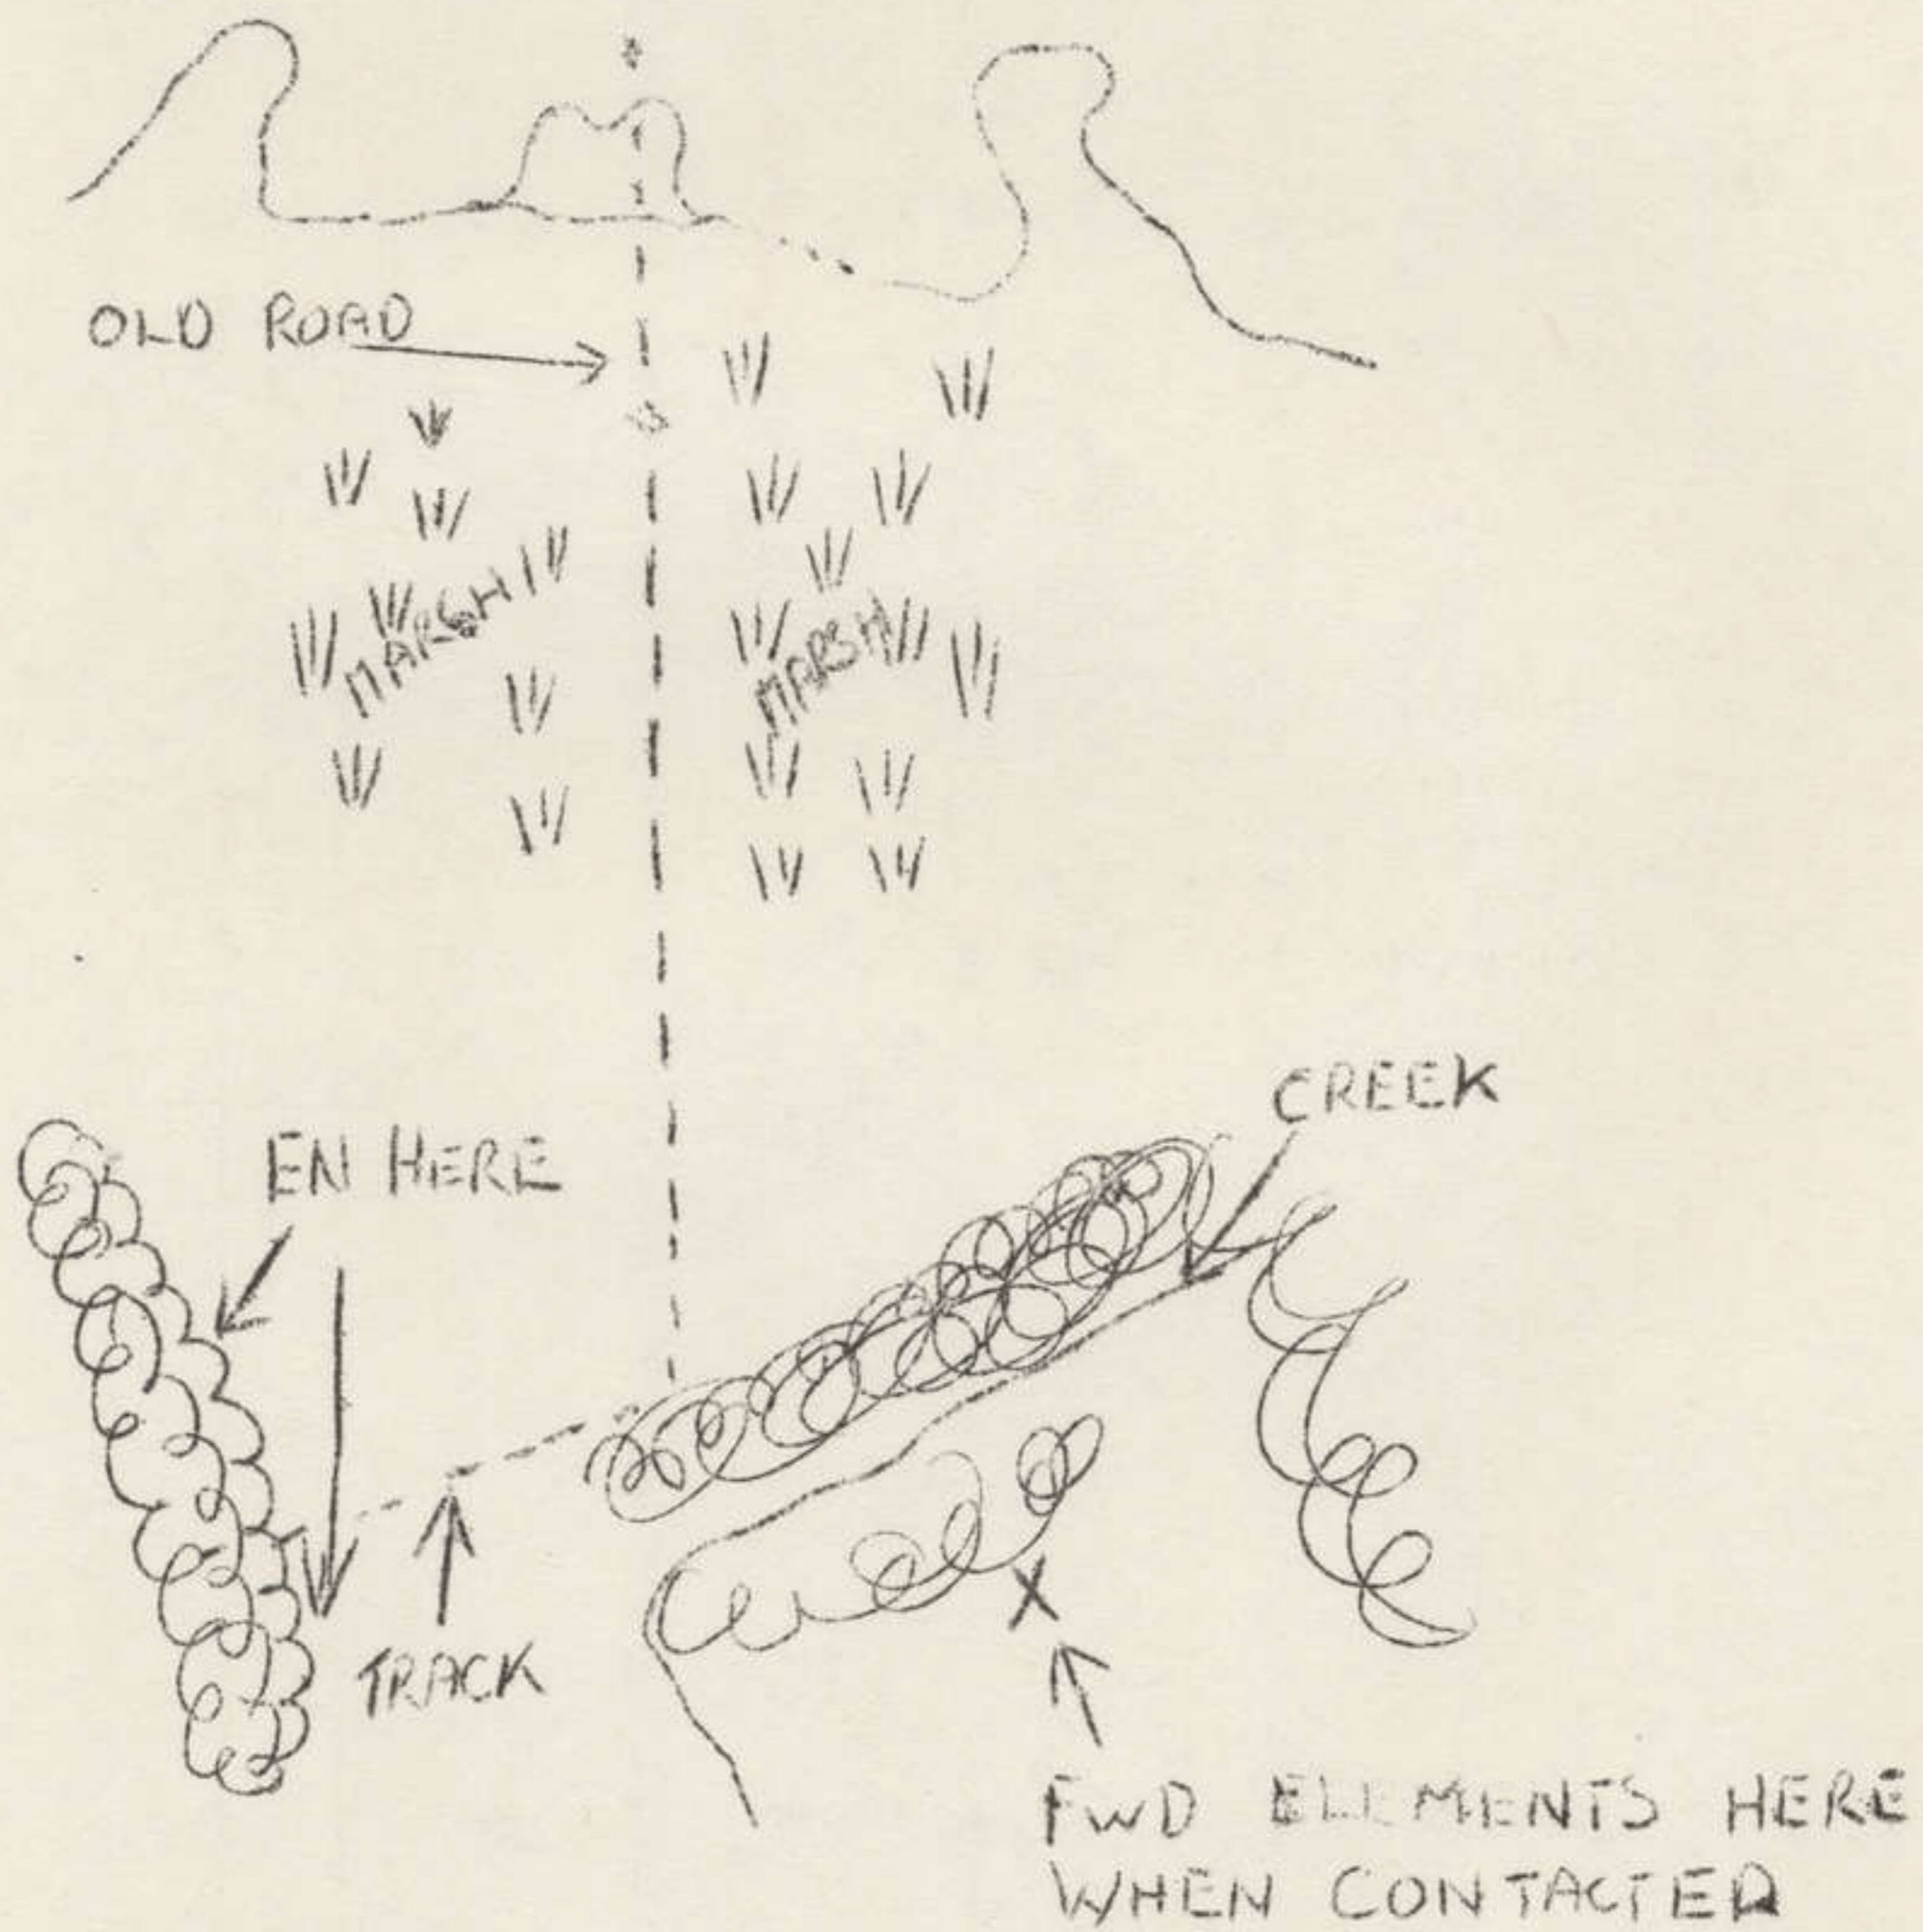 OLD ROAD
MARSH
MARSH
CREEK
EN HERE
TRACK
FWD ELEMENTS HERE
WHEN CONTACTED